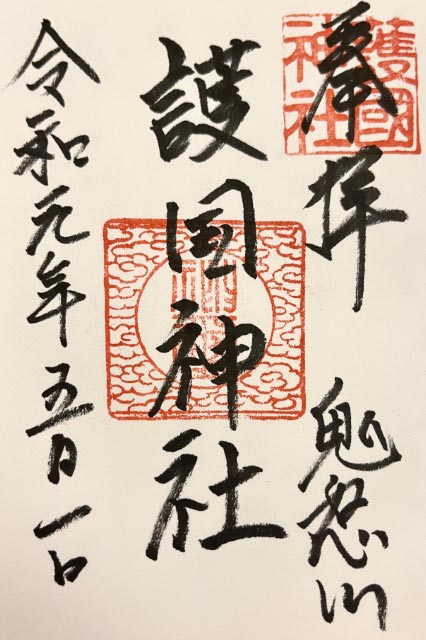 奉拝 鬼怒川
護國神社
護国神社
令和元年五月一日